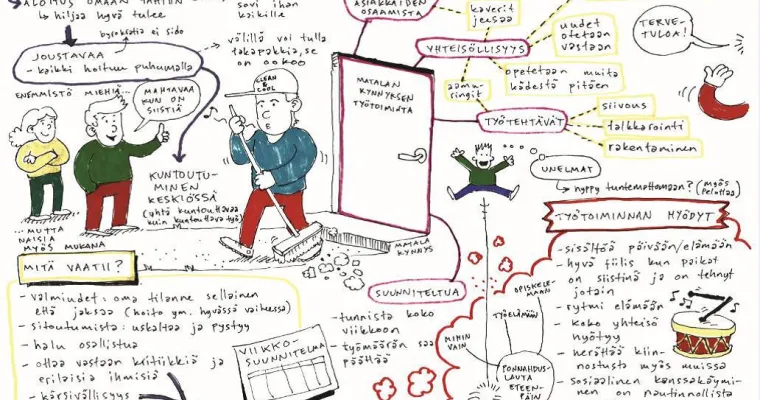 ALOITUS OMAAN TAHTIIN
↳ hiljaa hyvä tulee
byrokratia ei sido
JOUSTAVAA
- kaikki hoituu puhumalla
sovi ihan
kaikille
välillä voi tulla
takapakkia, se
on ookoo
ENEMMISTÖ MIEHIÄ...
MAHTAVAA
KUN ON
SIISTIÄ
... MUTTA
NAISIA
MYÖS MUKANA
KUNTOUTU-
MINEN
KESKIÖSSÄ
(yhtä kuntouttavaa
kuin kuntouttava työ)
CLEAN
&
COOL
MATALAN
KYNNYKSEN
TYÖTOIMINTA
MATALA
KYNNYS
ASIAKKAIDEN
OSAAMISTA
kaverit
jeesaa
YHTEISÖLLISYYS
uudet
otetaan
vastaan
opetetaan muita
kädestä pitäen
aamu-
ringit
TYÖTEHTÄVÄT
siivous
talkkarointi
rakentaminen
TERVE-
TULOA!
UNELMAT
↳ hyppy tuntemattomaan? (myös
pelottaa)
MITÄ VAATII?
- valmiudet: oma tilanne sellainen
että jaksaa (hoito ym. hyvässä vaiheessa)
- sitoutumista: uskaltaa ja pystyy
- halu osallistua
- ottaa vastaan kritiikkiä ja
erilaisia ihmisiä
- kärsivällisyys
VIIKKO-
SUUNNITELMA
SUUNNITELTUA
- tunnista koko
viikkoon
- työmäärän saa
päättää
OPISKELE-
MAAN
TYÖELÄMÄÄN
MIHIN
VAIN
PONNAHDUS-
LAUTA
ETEEN-
PÄIN
TYÖTOIMINNAN HYÖDYT
- sisältöä päivään/elämään
- hyvä fiilis kun paikat
on siistinä ja on tehnyt
jotain
- rytmi elämään
- koko yhteisö
hyötyy
- herättää kiin-
nostusta myös muissa
- sosiaalinen kanssakäymi-
nen on nautinnollista